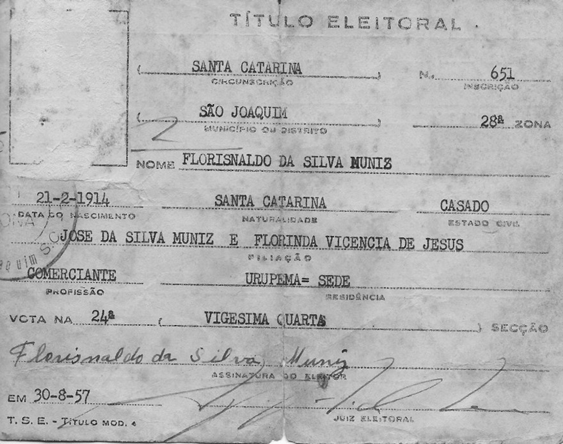 TÍTULO ELEITORAL
( SANTA CATARINA ) N. 651
CIRCUNSCRIÇÃO INSCRIÇÃO
( SÃO JOAQUIM ) 28ª ZONA
MUNICÍPIO OU DISTRITO
NOME FLORISNALDO DA SILVA MUNIZ
21-2-1914 SANTA CATARINA CASADO
DATA DO NASCIMENTO NATURALIDADE ESTADO CIVIL
JOSE DA SILVA MUNIZ E FLORINDA VICENCIA DE JESUS
FILIAÇÃO
COMERCIANTE URUPEMA= SEDE
PROFISSÃO RESIDÊNCIA
VOTA NA 24ª ( VIGESIMA QUARTA ) SECÇÃO
Florisnaldo da Silva Muniz
ASSINATURA DO ELEITOR
EM 30-8-57
JUIZ ELEITORAL
T. S. E. - TÍTULO MOD. 4